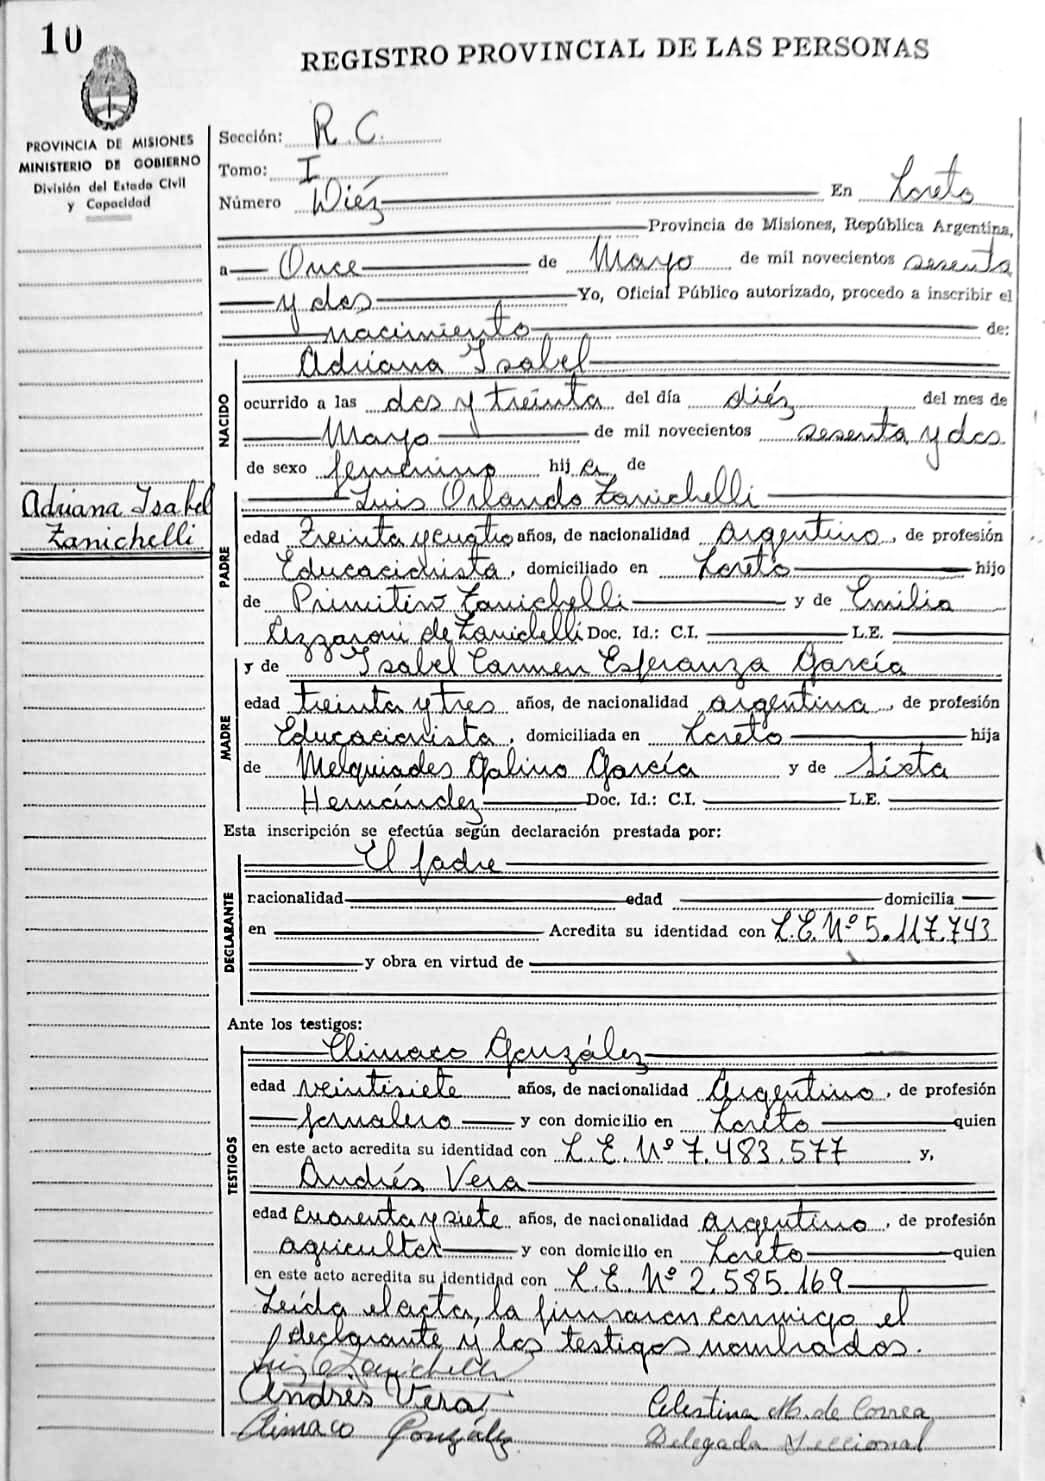 10
REGISTRO PROVINCIAL DE LAS PERSONAS
PROVINCIA DE MISIONES
MINISTERIO DE GOBIERNO
División del Estado Civil
y Capacidad
Sección: R.C.
Tomo: I
Número Diéz En Loreto
Provincia de Misiones, República Argentina,
a Once de Mayo de mil novecientos sesenta
y dos Yo, Oficial Público autorizado, procedo a inscribir el
nacimiento de:
Adriana Isabel
NACIDO
ocurrido a las dos y treinta del día diéz del mes de
Mayo de mil novecientos sesenta y dos
de sexo femenino hija de
Adriana Isabel
Zanichelli
Luis Orlando Zanichelli
PADRE
edad Treinta y cuatro años, de nacionalidad Argentino, de profesión
Educacionista, domiciliado en Loreto hijo
de Primitivo Zanichelli y de Emilia
Lezzaroni de Zanichelli Doc. Id.: C.I. L.E.
y de Isabel Carmen Esperanza García
MADRE
edad treinta y tres años, de nacionalidad argentina, de profesión
Educacionista, domiciliada en Loreto hija
de Melquiades Galino García y de Sixta
Hernández Doc. Id.: C.I. L.E.
Esta inscripción se efectúa según declaración prestada por:
El padre
DECLARANTE
nacionalidad edad domicilia
en Acredita su identidad con L.E. Nº 5.117.743
y obra en virtud de
Ante los testigos:
Climaco González
TESTIGOS
edad veintisiete años, de nacionalidad Argentino, de profesión
jornalero y con domicilio en Loreto quien
en este acto acredita su identidad con L.E. Nº 7.483.577 y,
Andrés Vera
edad cuarenta y siete años, de nacionalidad argentino, de profesión
agricultor y con domicilio en Loreto quien
en este acto acredita su identidad con L.E. Nº 2.585.169
Leída el acta, la firmaran conmigo el
declarante y los testigos nombrados.
Luis O Zanichelli
Andrés Vera
Climaco González
Celestina M. de Correa
Delegada Seccional